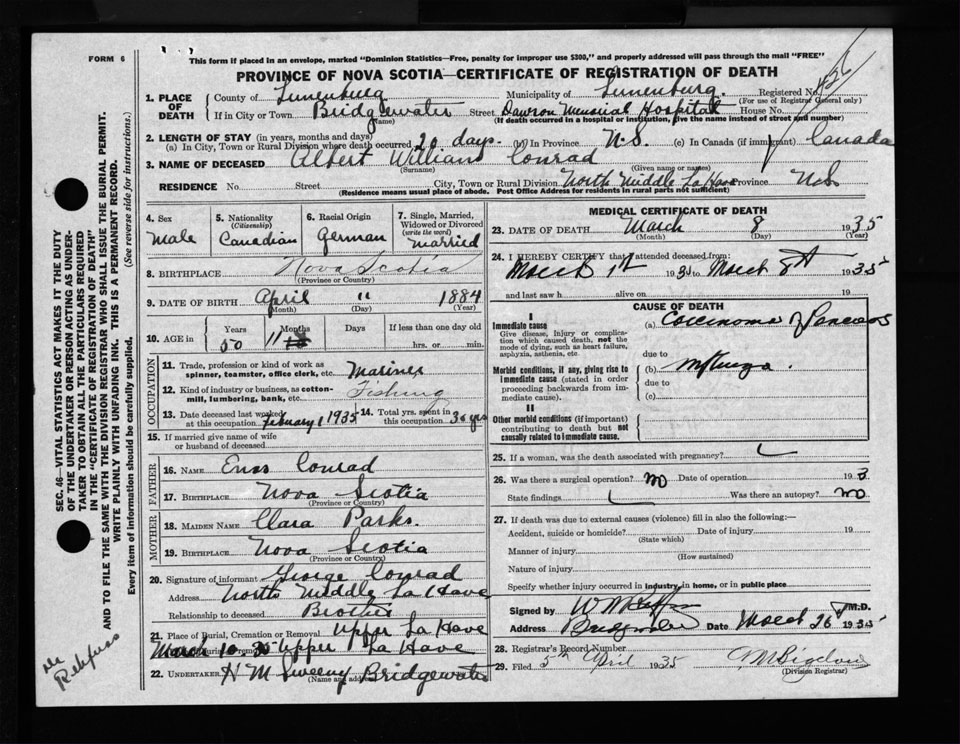 FORM 6
This form if placed in an envelope, marked "Dominion Statistics—Free, penalty for improper use $300," and properly addressed will pass through the mail "FREE"
PROVINCE OF NOVA SCOTIA—CERTIFICATE OF REGISTRATION OF DEATH
Registered No. 426
(For use of Registrar General only)
1. PLACE OF DEATH
County of Lunenburg Municipality of Lunenburg.
If in City or Town Bridgewater Street Dawson Memorial Hospital House No.
(Name) (If death occurred in a hospital or institution, give the name instead of street and number)
2. LENGTH OF STAY (in years, months and days)
(a) In City, Town or Rural Division where death occurred 20 days. (b) In Province N.S. (c) In Canada (if immigrant) Canada
3. NAME OF DECEASED Albert William Conrad
(Surname) (Given name or names)
RESIDENCE No. Street City, Town or Rural Division North Middle La Have Province N.S
(Residence means usual place of abode. Post Office Address for residents in rural parts not sufficient)
4. Sex
Male
5. Nationality
(Citizenship)
Canadian
6. Racial Origin
German
7. Single, Married, Widowed or Divorced
(write the word)
Married
8. BIRTHPLACE Nova Scotia
(Province or Country)
9. DATE OF BIRTH April 11 1884
(Month) (Day) (Year)
10. AGE in
Years Months Days If less than one day old
50 11 hrs. or min.
OCCUPATION
11. Trade, profession or kind of work as spinner, teamster, office clerk, etc. Mariner
12. Kind of industry or business, as cotton-mill, lumbering, bank, etc. Fishing
13. Date deceased last worked at this occupation February 1 1935
14. Total yrs. spent in this occupation 30 yrs
15. If married give name of wife or husband of deceased
FATHER
16. NAME Enos Conrad
17. BIRTHPLACE Nova Scotia
(Province or Country)
MOTHER
18. MAIDEN NAME Clara Parks.
19. BIRTHPLACE Nova Scotia
(Province or Country)
20. Signature of informant George Conrad
Address North Middle La Have
Relationship to deceased Brother
21. Place of Burial, Cremation or Removal Upper La Have
March 10. 35 Upper La Have
22. UNDERTAKER H M Sweeny Bridgewater
(Name and address)
MEDICAL CERTIFICATE OF DEATH
23. DATE OF DEATH March 8 1935
(Month) (Day) (Year)
24. I HEREBY CERTIFY that I attended deceased from:
March 1st 1935 to March 8th 1935
and last saw h alive on 19
CAUSE OF DEATH
I
Immediate cause
Give disease, injury or complication which caused death, not the mode of dying, such as heart failure, asphyxia, asthenia, etc.
(a) Carcinoma of Pancreas
due to
Morbid conditions, if any, giving rise to immediate cause (stated in order proceeding backwards from immediate cause).
(b)
due to
(c)
II
Other morbid conditions (if important) contributing to death but not causally related to immediate cause.
25. If a woman, was the death associated with pregnancy?
26. Was there a surgical operation? no Date of operation 193
State findings Was there an autopsy? no
27. If death was due to external causes (violence) fill in also the following:—
Accident, suicide or homicide? Date of injury 19
(State which)
Manner of injury
(How sustained)
Nature of injury
Specify whether injury occurred in industry, in home, or in public place
Signed by M.D.
Address Bridgewater Date March 26 1935
28. Registrar's Record Number
29. Filed 5th April 1935
(Division Registrar)
SEC. 46—VITAL STATISTICS ACT MAKES IT THE DUTY OF THE UNDERTAKER OR PERSON ACTING AS UNDERTAKER TO OBTAIN ALL THE PARTICULARS REQUIRED IN THE "CERTIFICATE OF REGISTRATION OF DEATH" AND TO FILE THE SAME WITH THE DIVISION REGISTRAR WHO SHALL ISSUE THE BURIAL PERMIT.
WRITE PLAINLY WITH UNFADING INK. THIS IS A PERMANENT RECORD.
Every item of information should be carefully supplied. (See reverse side for instructions.)